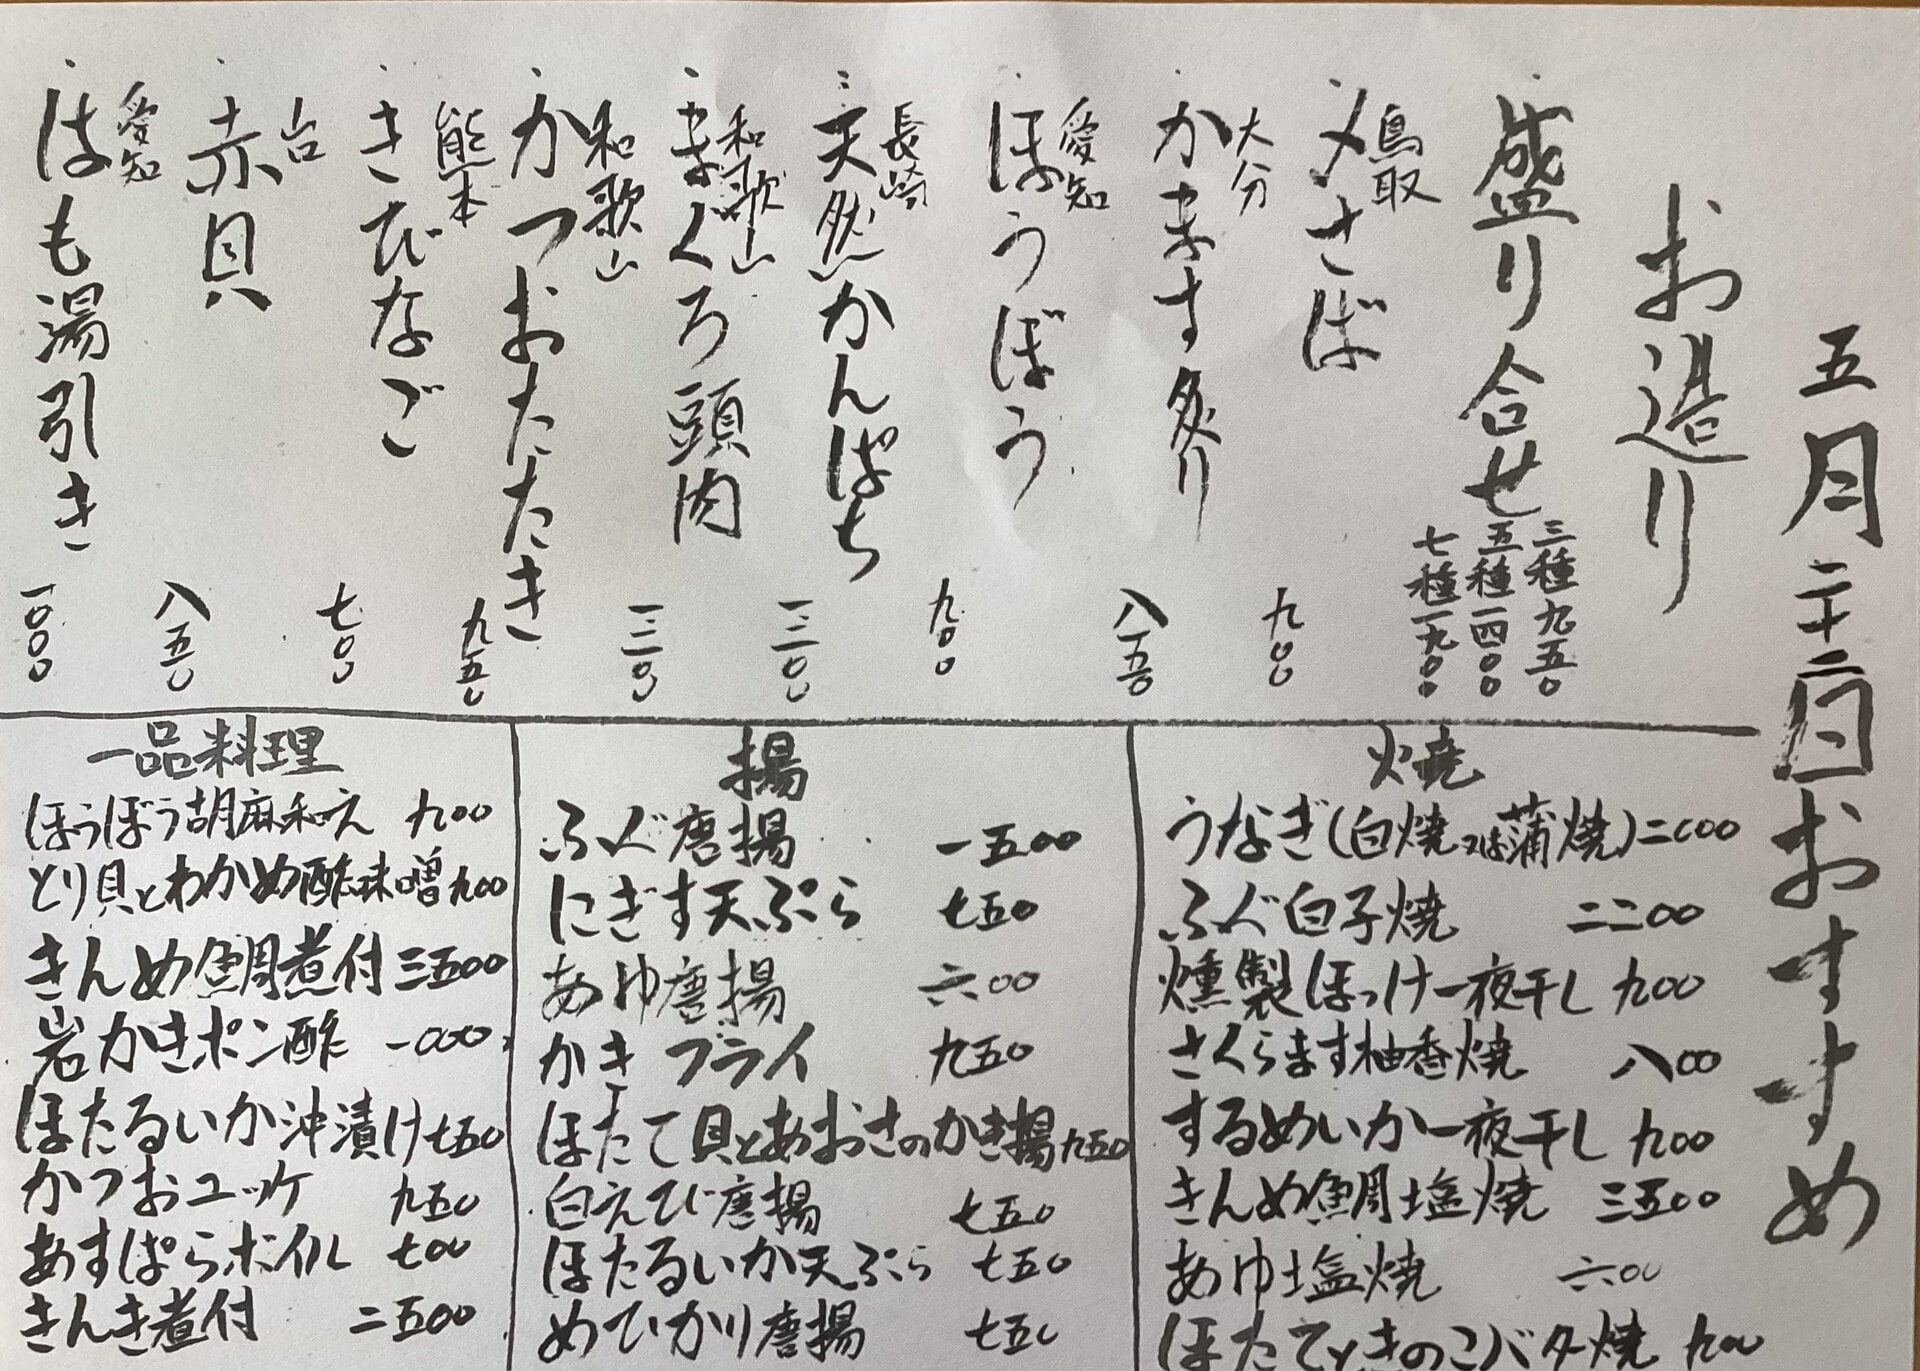 五月二十二日おすすめ
お造り
盛り合せ
三種九五〇
五種一四〇〇
七種一九〇〇
鳥取
〆さば 九〇〇
大分
かます炙り 八五〇
愛知
ほうぼう 九〇〇
長崎
天然かんぱち 一二〇〇
和歌山
まぐろ頭肉 一二〇〇
和歌山
かつおたたき 九五〇
熊本
きびなご 七〇〇
赤貝 八五〇
愛知
はも湯引き 一〇〇〇
焼
うなぎ(白焼又は蒲焼)二〇〇〇
ふぐ白子焼 二二〇〇
燻製ほっけ一夜干し 九〇〇
さくらます柚香焼 八〇〇
するめいか一夜干し 九〇〇
きんめ鯛塩焼 三五〇〇
あゆ塩焼 六〇〇
ほたてときのこバター焼 九〇〇
揚
ふぐ唐揚 一五〇〇
にぎす天ぷら 七五〇
あゆ唐揚 六〇〇
かきフライ 九五〇
ほたて貝とあおさのかき揚 九五〇
白えび唐揚 七五〇
ほたるいか天ぷら 七五〇
めひかり唐揚 七五〇
一品料理
ほうぼう胡麻和え 九〇〇
とり貝とわかめ酢味噌 九〇〇
きんめ鯛煮付 三五〇〇
岩かきポン酢 一〇〇〇
ほたるいか沖漬け 七五〇
かつおユッケ 九五〇
あすぱらボイル 七〇〇
きんき煮付 二五〇〇